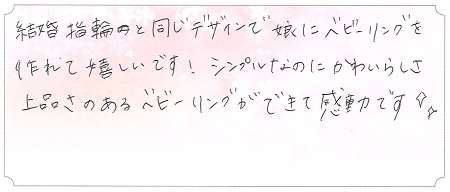 結婚指輪のと同じデザインで娘にベビーリングを
作れて嬉しいです！シンプルなのにかわいらしさ
上品さのあるベビーリングができて感動です